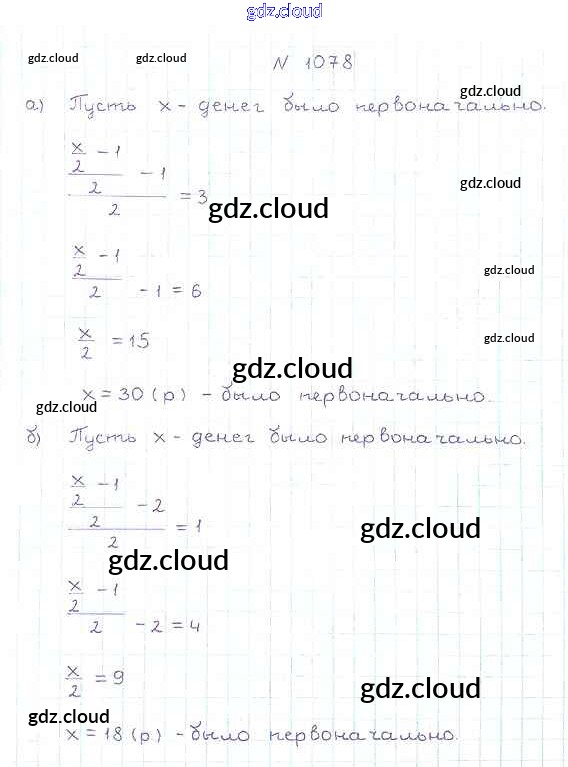 gdz.cloud
gdz.cloud gdz.cloud N 1078
gdz.cloud
а) Пусть x - денег было первоначально.
x/2 - 1
/2 - 1
/2 = 3
gdz.cloud
gdz.cloud
x/2 - 1
/2 - 1 = 6
gdz.cloud
x/2 = 15
gdz.cloud
gdz.cloud
x = 30 (р) - было первоначально.
gdz.cloud
б) Пусть x - денег было первоначально.
x/2 - 1
/2 - 2
/2 = 1
gdz.cloud
gdz.cloud
x/2 - 1
/2 - 2 = 4
x/2 = 9
gdz.cloud
gdz.cloud
x = 18 (р) - было первоначально.